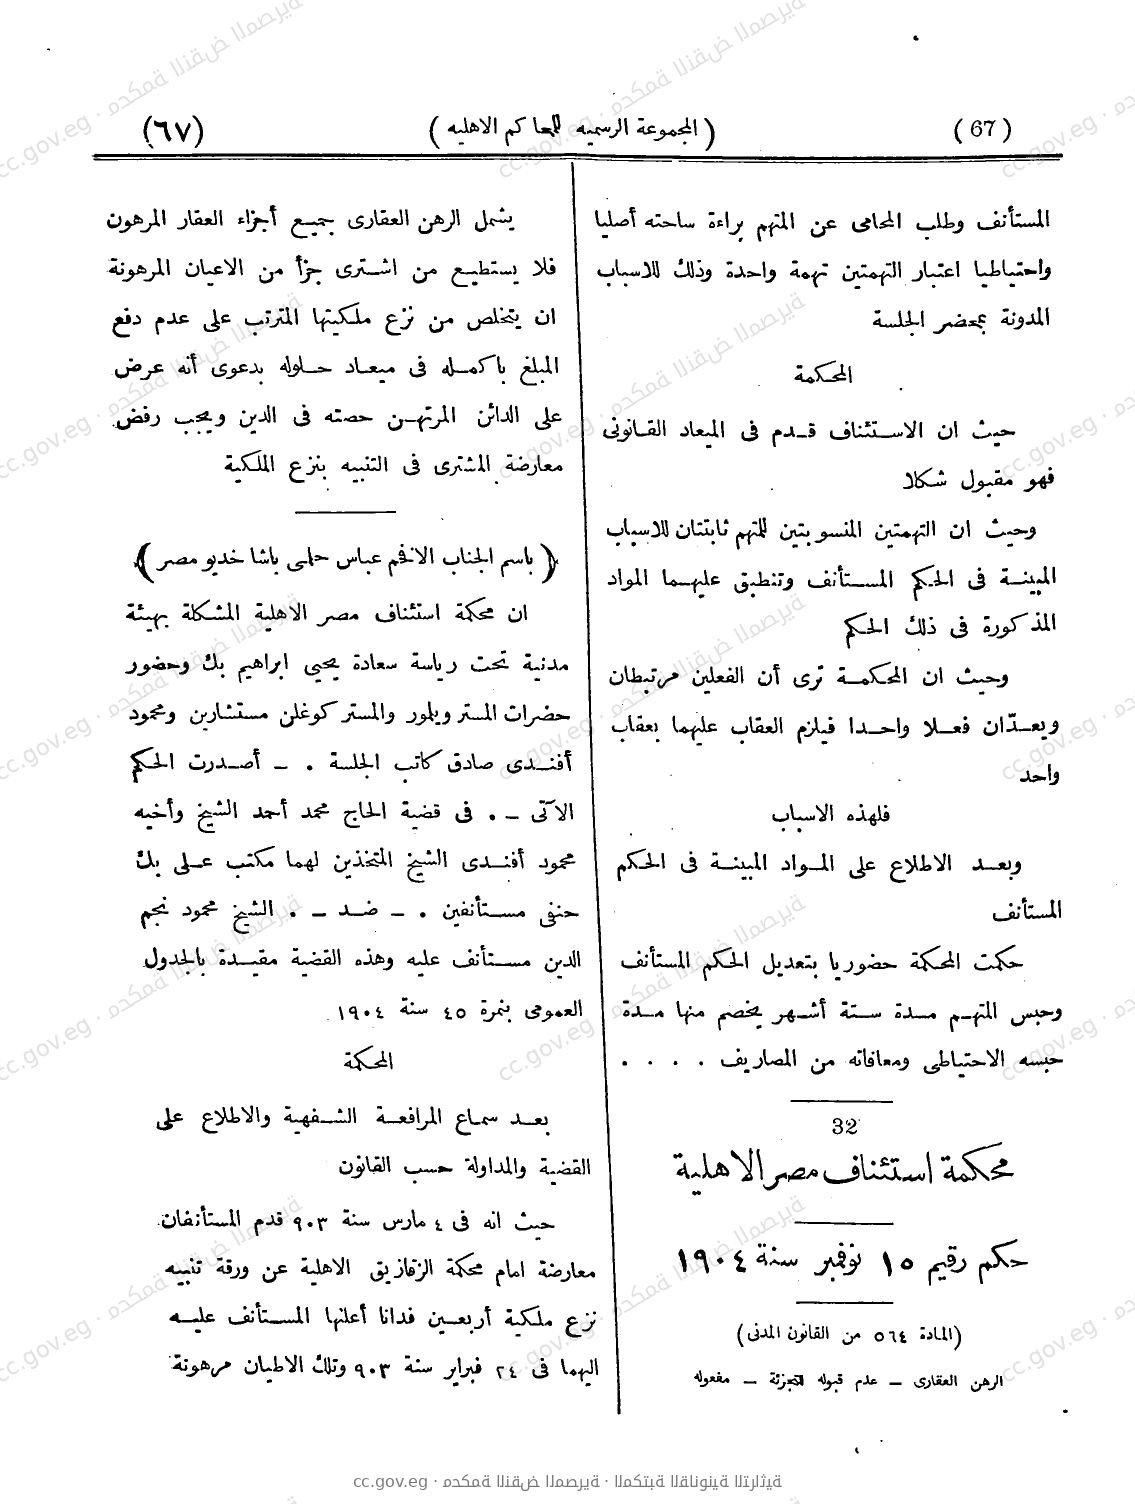 (67) (المجموعة الرسميه للمحاكم الاهليه) (٦٧)
المستأنف وطلب المحامى عن المتهم براءة ساحته أصليا
واحتياطيا اعتبار التهمتين تهمة واحدة وذلك للاسباب
المدونة بمحضر الجلسة
المحكمة
حيث ان الاستئناف قدم فى الميعاد القانونى
فهو مقبول شكلا
وحيث ان التهمتين المنسوبتين للمتهم ثابتتان للاسباب
المبينة فى الحكم المستأنف وتنطبق عليهما المواد
المذكورة فى ذلك الحكم
وحيث ان المحكمة ترى أن الفعلين مرتبطان
ويعدّان فعلا واحدا فيلزم العقاب عليهما بعقاب
واحد
فلهذه الاسباب
وبعد الاطلاع على المواد المبينة فى الحكم
المستأنف
حكمت المحكمة حضوريا بتعديل الحكم المستأنف
وحبس المتهم مدة ستة أشهر يخصم منها مدة
حبسه الاحتياطى ومعافاته من المصاريف . . . .
32
محكمة استئناف مصر الاهلية
حكم رقيم ١٥ نوفمبر سنة ١٩٠٤
(المادة ٥٦٤ من القانون المدنى)
الرهن العقارى – عدم قبوله التجزئة – مفعوله
يشمل الرهن العقارى جميع أجزاء العقار المرهون
فلا يستطيع من اشترى جزأ من الاعيان المرهونة
ان يتخلص من نزع ملكيتها المترتب على عدم دفع
المبلغ باكمله فى ميعاد حلوله بدعوى أنه عرض
على الدائن المرتهن حصته فى الدين ويجب رفض
معارضة المشترى فى التنبيه بنزع الملكية
(باسم الجناب الافخم عباس حلمى باشا خديو مصر)
ان محكمة استئناف مصر الاهلية المشكلة بهيئة
مدنية تحت رياسة سعادة يحيى ابراهيم بك وحضور
حضرات المستر ويلمور والمستر كوغلن مستشارين ومحمود
أفندى صادق كاتب الجلسة . – أصدرت الحكم
الآتى – . فى قضية الحاج محمد أحمد الشيخ وأخيه
محمود أفندى الشيخ المتخذين لهما مكتب على بك
حنفى مستأنفين . – ضد – . الشيخ محمود نجم
الدين مستأنف عليه وهذه القضية مقيدة بالجدول
العمومى بنمرة ٤٥ سنة ١٩٠٤
المحكمة
بعد سماع المرافعة الشفهية والاطلاع على
القضية والمداولة حسب القانون
حيث انه فى ٤ مارس سنة ٩٠٣ قدم المستأنفان
معارضة امام محكمة الزقازيق الاهلية عن ورقة تنبيه
نزع ملكية أربعين فدانا أعلنها المستأنف عليه
اليهما فى ٢٤ فبراير سنة ٩٠٣ وتلك الاطيان مرهونة
cc.gov.eg · محكمة النقض المصرية · المكتبة القانونية التراثية